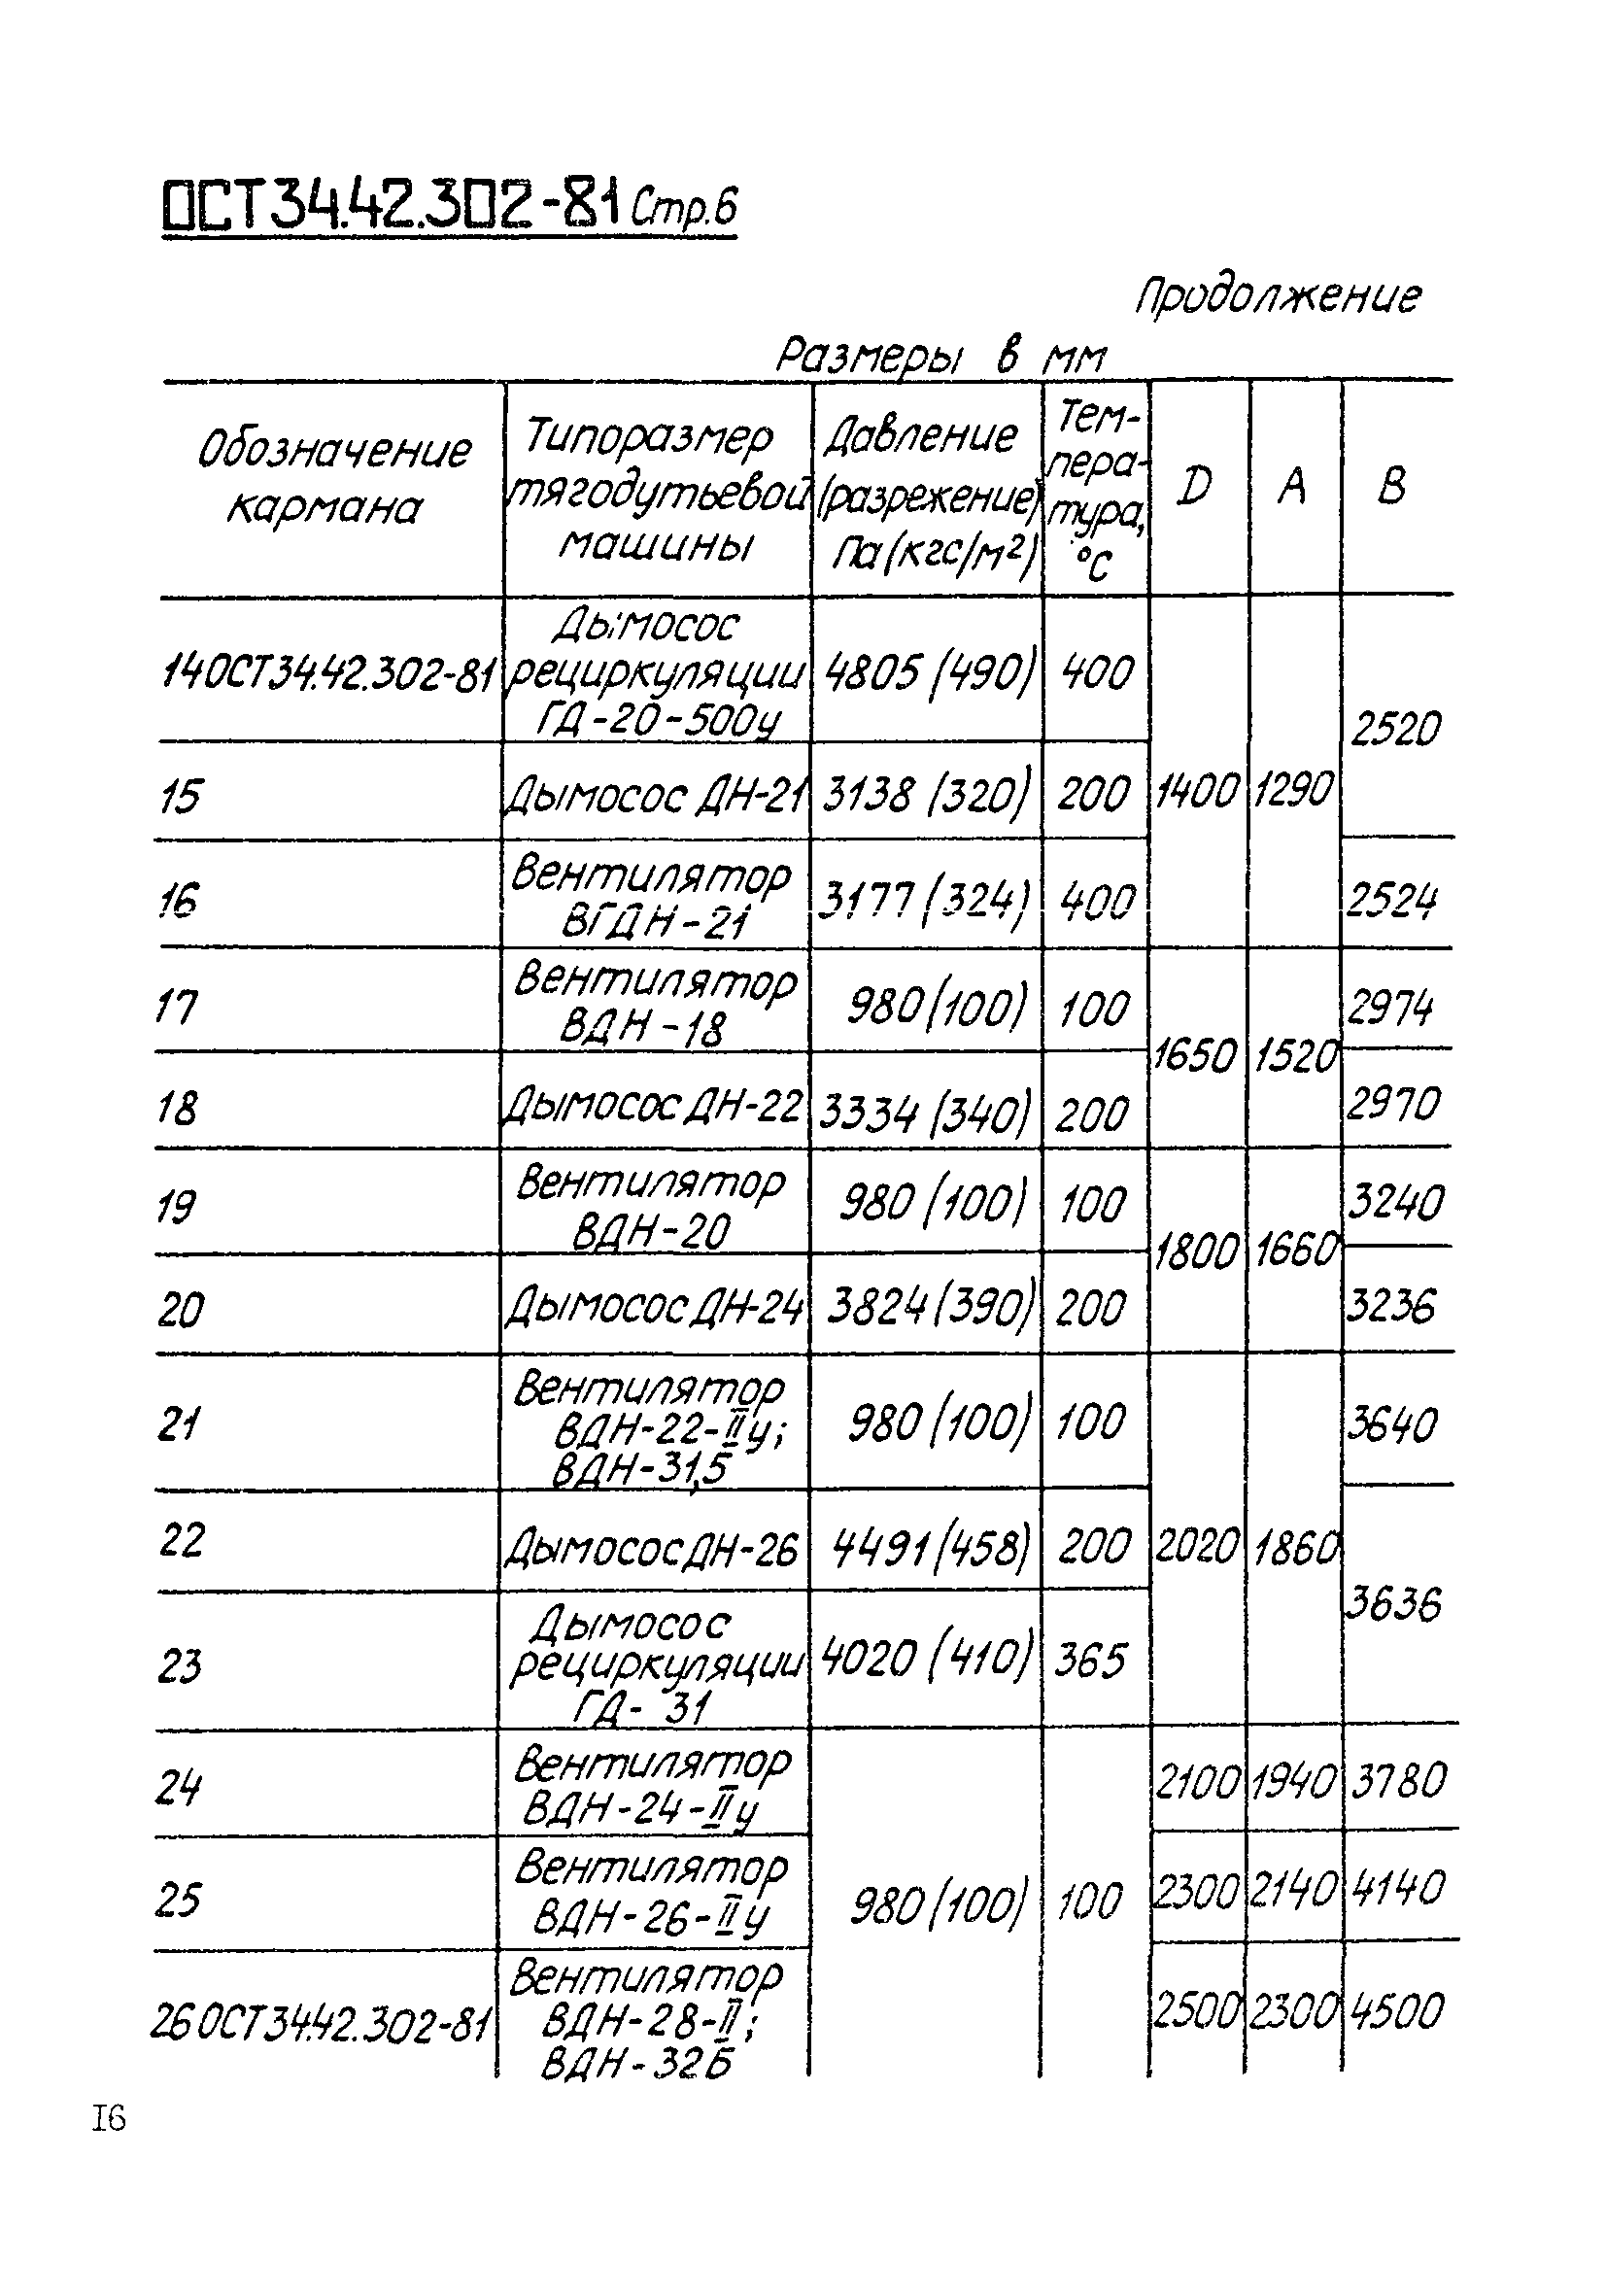 ОСТ34.42.302-81 Стр.6
Продолжение
Размеры в мм
Обозначение
кармана
Типоразмер
тягодутьевой
машины
Давление
(разрежение)
Па(кгс/м²)
Тем-
пера-
тура,
°С
D
A
B
14ОСТ34.42.302-81
Дымосос
рециркуляции
ГД-20-500у
4805 (490)
400
1400
1290
2520
15
Дымосос ДН-21
3138 (320)
200
16
Вентилятор
ВГДН-21
3177 (324)
400
2524
17
Вентилятор
ВДН-18
980(100)
100
1650
1520
2974
18
Дымосос ДН-22
3334 (340)
200
2970
19
Вентилятор
ВДН-20
980 (100)
100
1800
1660
3240
20
Дымосос ДН-24
3824(390)
200
3236
21
Вентилятор
ВДН-22-IIу;
ВДН-31,5
980 (100)
100
2020
1860
3640
22
Дымосос ДН-26
4491(458)
200
3636
23
Дымосос
рециркуляции
ГД- 31
4020 (410)
365
24
Вентилятор
ВДН-24-IIу
980(100)
100
2100
1940
3780
25
Вентилятор
ВДН-26-IIу
2300
2140
4140
26ОСТ34.42.302-81
Вентилятор
ВДН-28-II;
ВДН-32Б
2500
2300
4500
I6